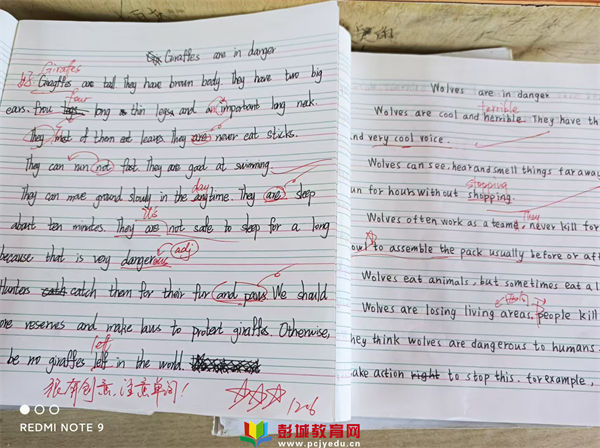 Giraffes are in danger
Giraffes
Giraffes are tall they have brown body they have two big
four
ears. long thin legs and an important long neck.
They most of them eat leaves. They are never eat sticks.
They can run not fast. They are good at swimming.
day
They can move ground slowly in the anytime. They are sleep
It's
about ten minutes. They are not safe to sleep for a long
because that is very dangerous adj
Hunters catch them for their fur and paws. We should
ore reserves and make laws to protect giraffes. Otherwise,
left
be no giraffes left in the world.
很有创意，注意单词！
12.6
Wolves are in danger
terrible
Wolves are cool and herrible. They have th
nd very cool voice.
Wolves can see, hear and smell things far away
stopping
un for hours without shopping.
They
Wolves often work as a team, never kill for
owl to assemble the pack usually before or aft
Wolves eat animals, but sometimes eat al
Wolves are losing living areas, people kill
hey think wolves are dangerous to humans.
ake action right to stop this. for example,
REDMI NOTE 9
彭城教育网
www.pcjyedu.cn